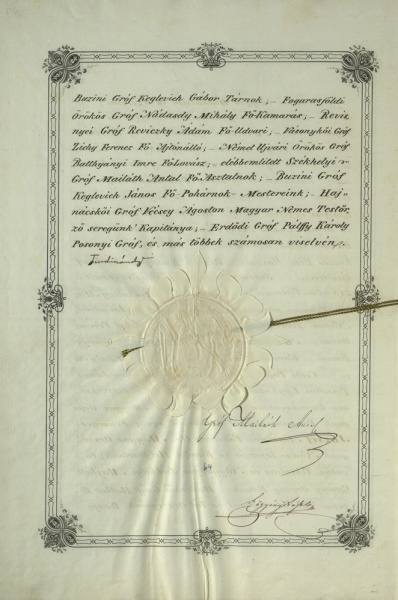 Buzini Gróf Keglevich Gábor Tárnok; – Fogarasföldi
Örökös Gróf Nádasdy Mihály Fő-Kamarás; – Revis,,
nyei Gróf Reviczky Ádám Fő-Udvari; – Vásonykői Gróf
Zichy Ferencz Fő-Ajtónálló; – Német Ujvári Örökös Gróf
Batthyányi Imre FőLovász; – előbbemlitett Székhelyi
Gróf Mailáth Antal Fő-Asztalnok; – Buzini Gróf
Keglevich János Fő-Pohárnok-Mestereink; – Haj,,
nácskői Gróf Vécsey Ágoston Magyar Nemes Testőr,,
ző seregünk' Kapitánya; – Erdődi Gróf Pálffy Károly
Posonyi Gróf, és más többek számosan viselvén.
Ferdinánd
Gróf Mailáth Antal